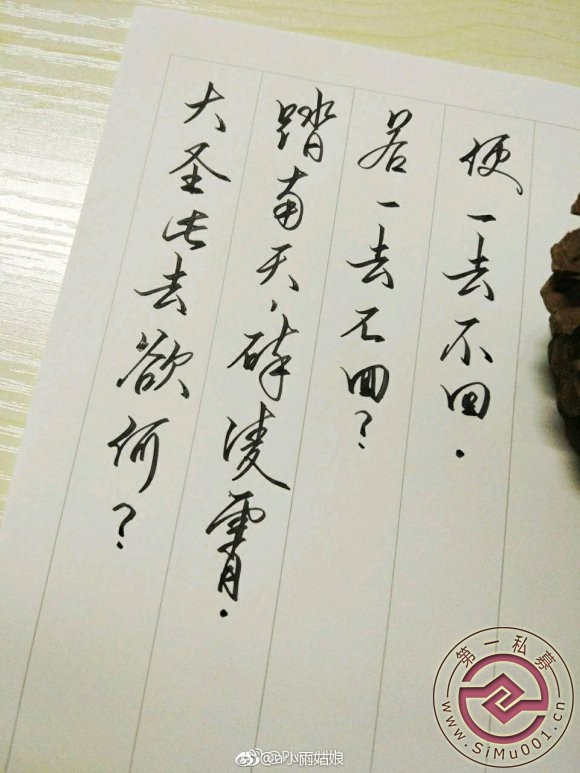 大圣此去欲何？
踏南天，碎凌霄．
若一去不回？
便一去不回．
第一私募
www.SiMu001.cn
@a小雨姑娘